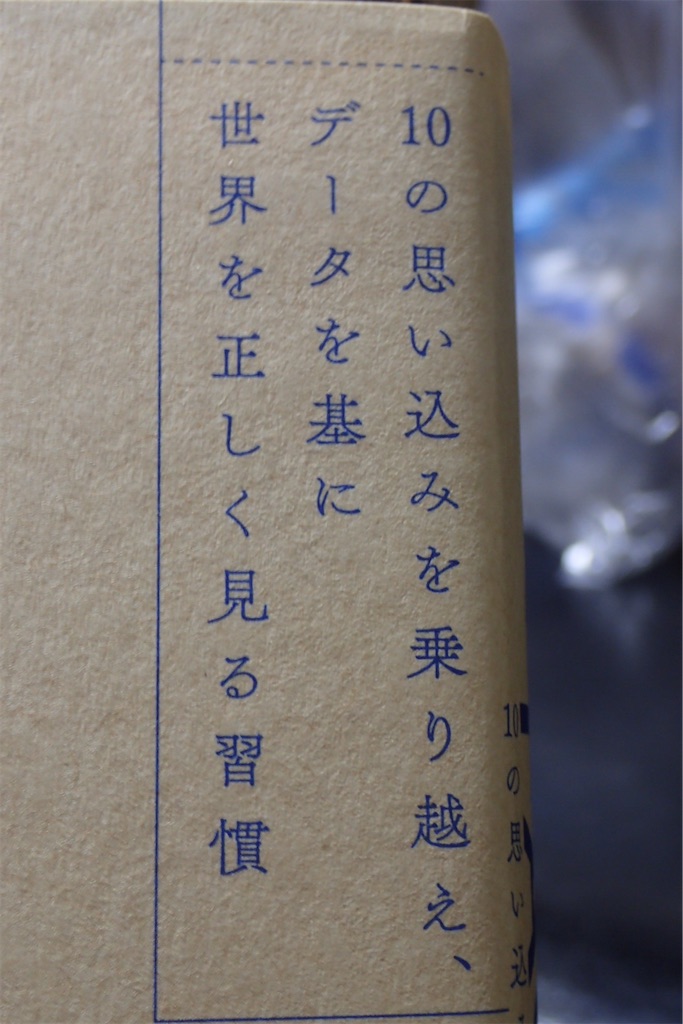 10の思い込みを乗り越え、
データを基に
世界を正しく見る習慣
10の思い込